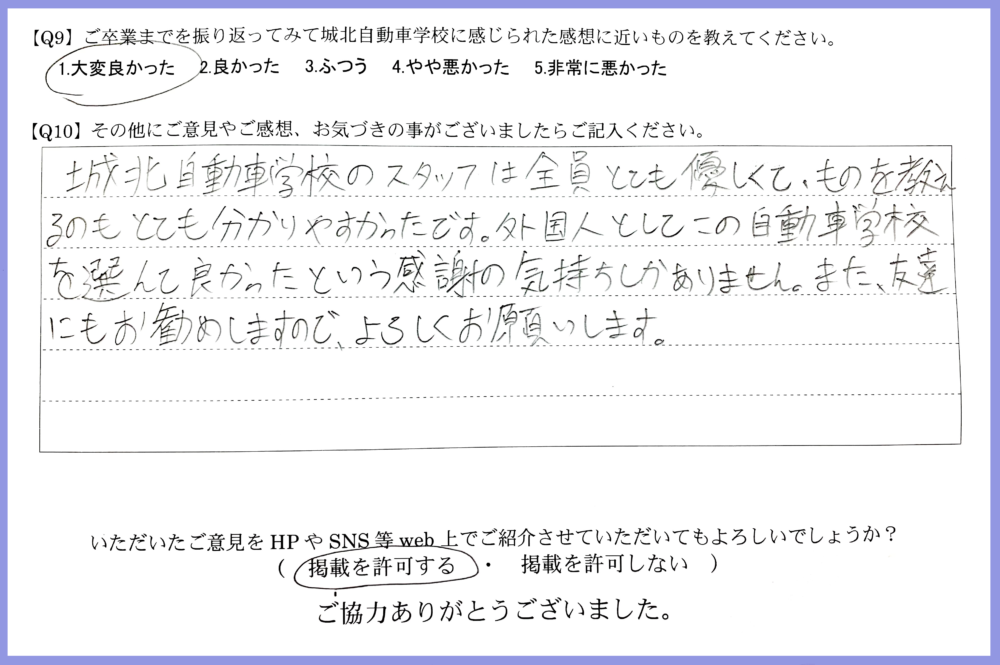 【Q9】ご卒業までを振り返ってみて城北自動車学校に感じられた感想に近いものを教えてください。
1.大変良かった 2.良かった 3.ふつう 4.やや悪かった 5.非常に悪かった
【Q10】その他にご意見やご感想、お気づきの事がございましたらご記入ください。
城北自動車学校のスタッフは全員とても優しくて、ものを教え
るのもとても分かりやすかったです。外国人としてこの自動車学校
を選んで良かったという感謝の気持ちしかありません。また、友達
にもお勧めしますので、よろしくお願いします。
いただいたご意見をHPやSNS等web上でご紹介させていただいてもよろしいでしょうか？
（ 掲載を許可する ・ 掲載を許可しない ）
ご協力ありがとうございました。